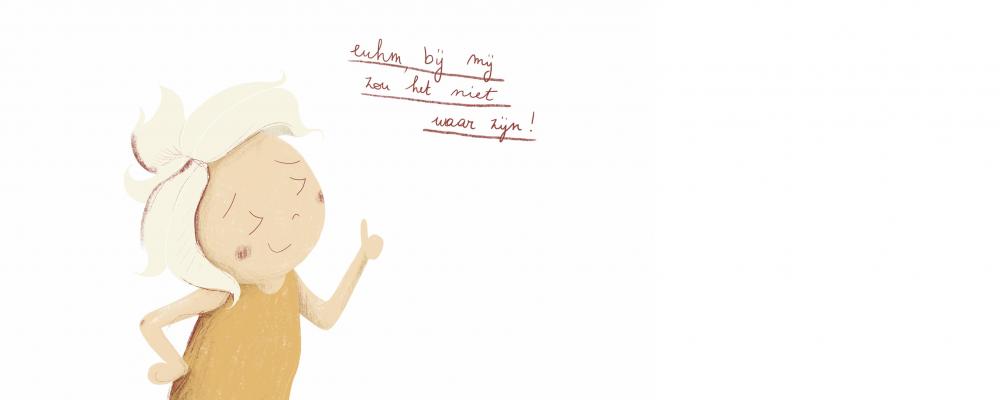 euhm, bij mij
zou het niet
waar zijn!